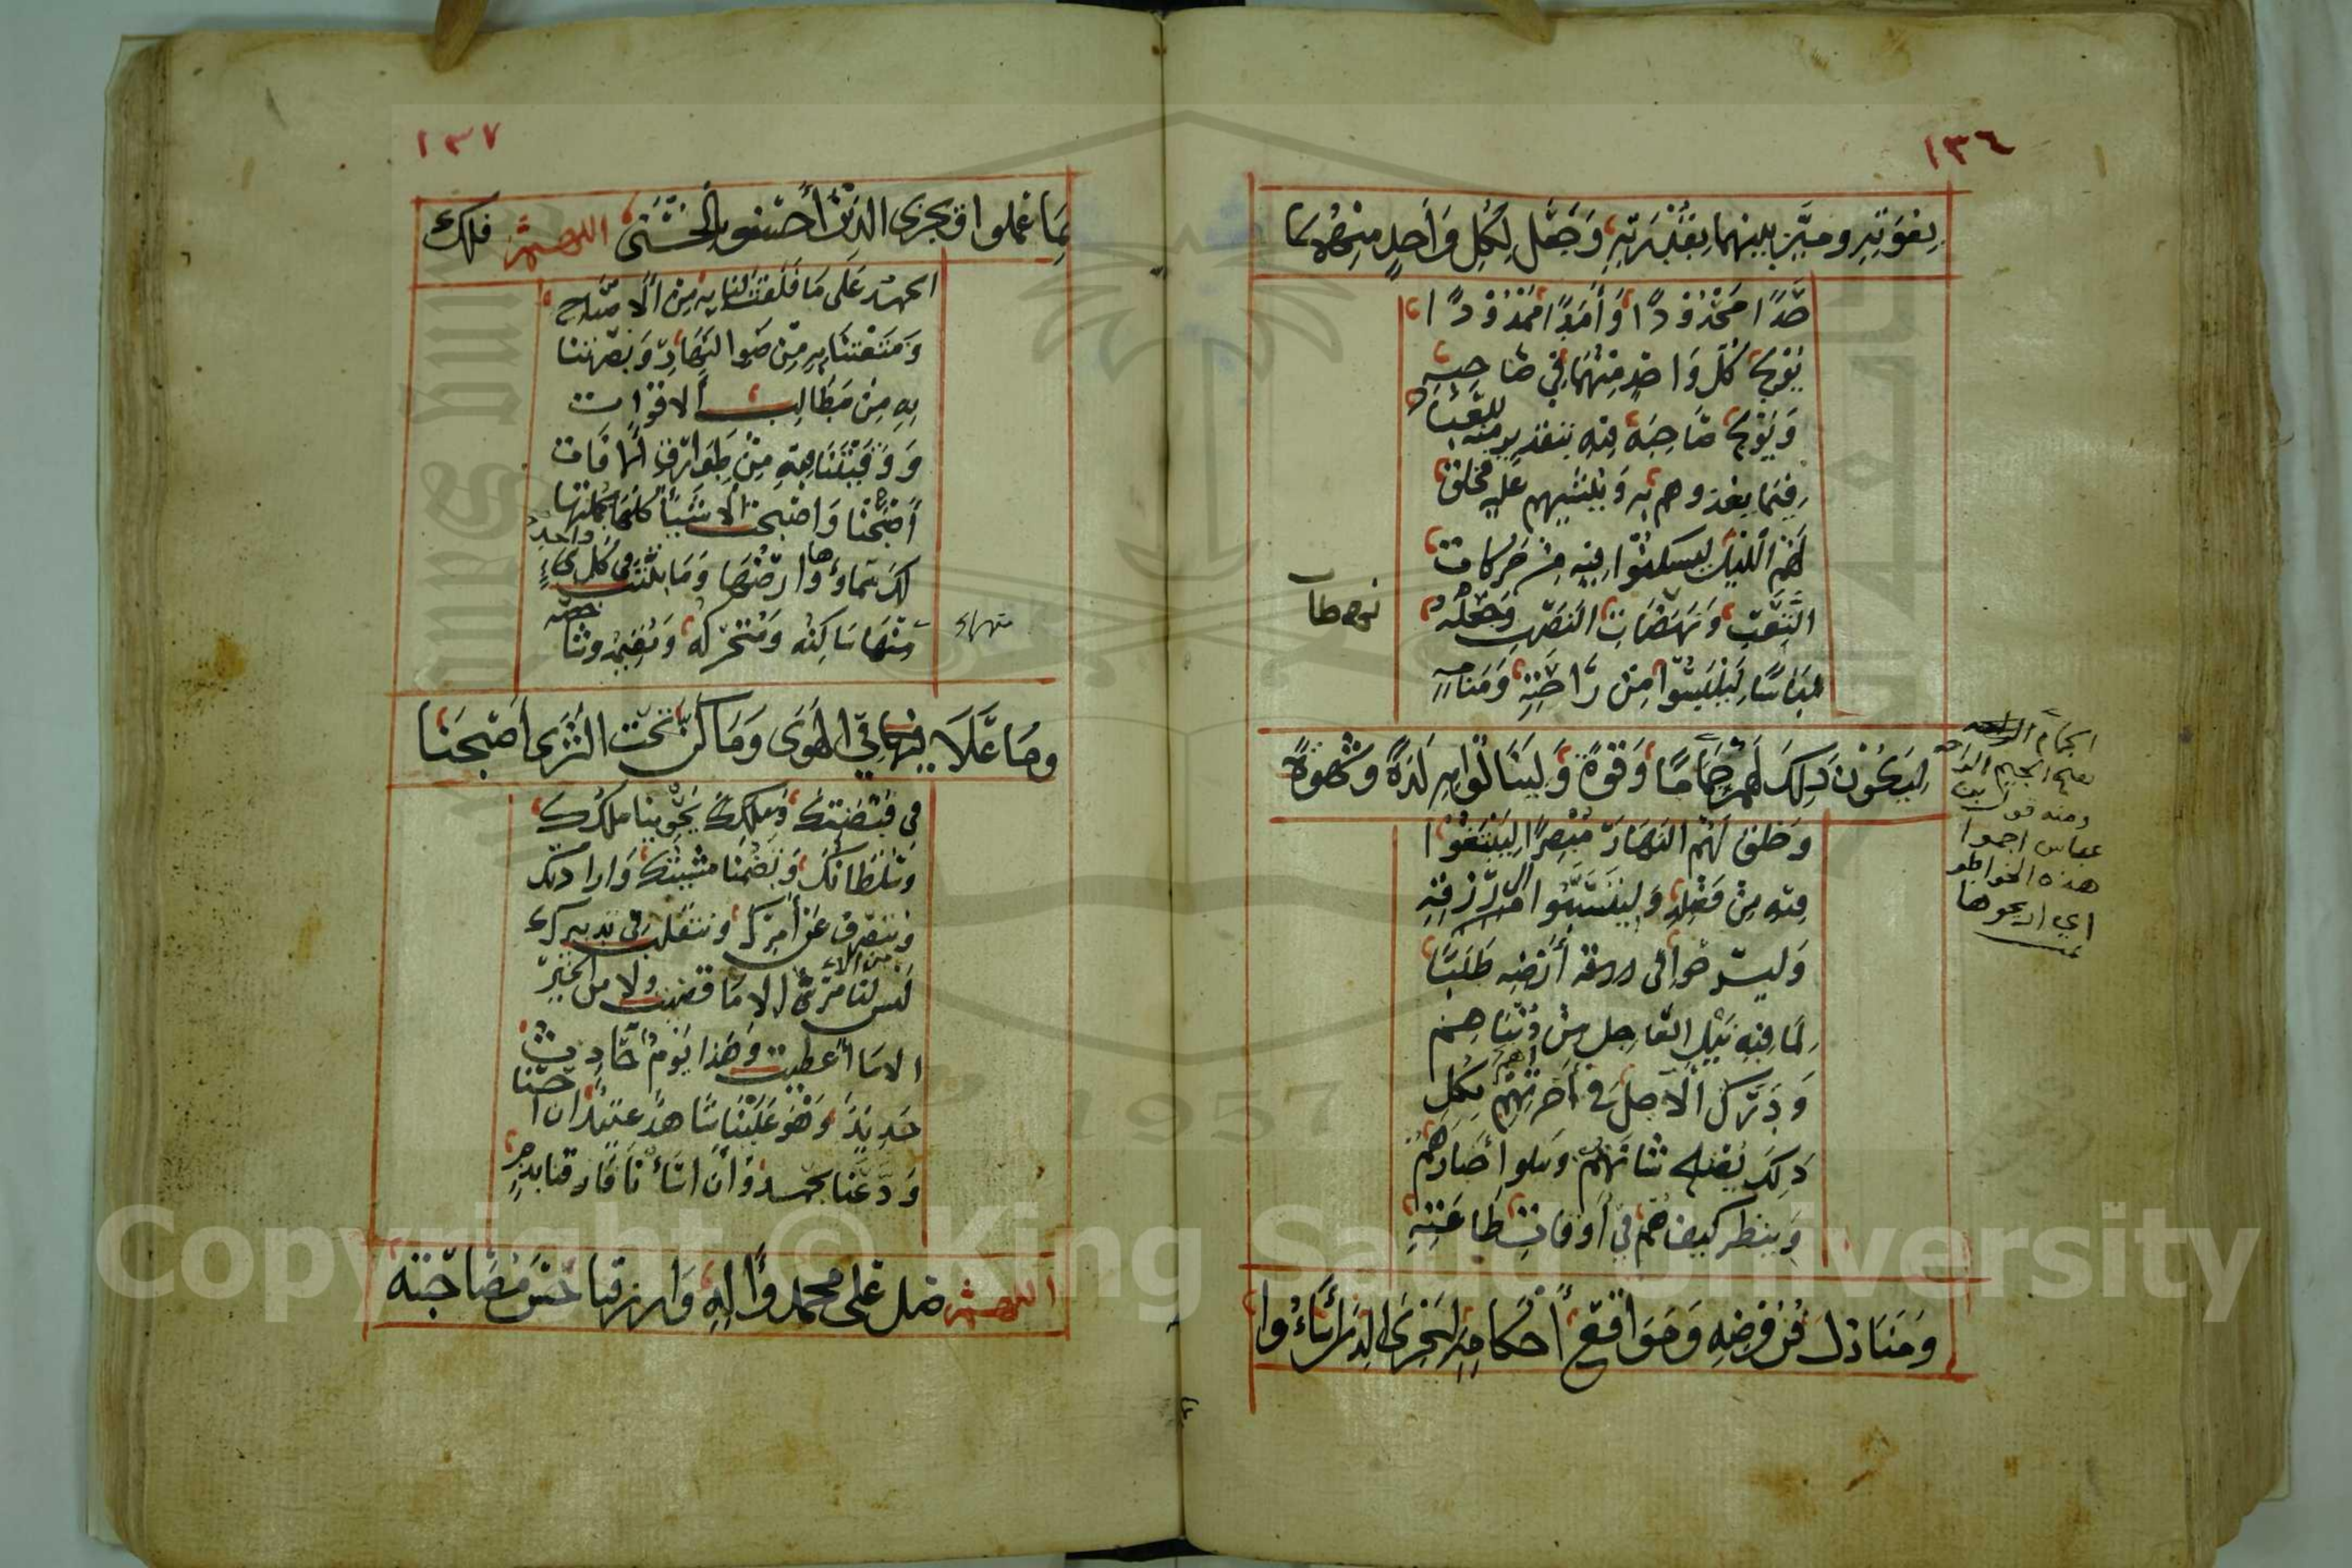 ١٣٤
بقوته وميز بينهما بقدرته وجعل لكل واحد منهما
حدًا محدودًا وأمدًا ممدودًا
يولج كل واحد منهما في صاحبه
ويولج صاحبه فيه بتقدير منه للعباد
فيما يغذوهم به وينشيهم عليه فخلق
لهم الليل ليسكنوا فيه من حركات
التعب ونهضات النصب وجعله
لباسًا ليلبسوا من راحته ومنامه
ليكون ذلك لهم جمامًا وقوة ولينالوا به لذة وشهوة
وخلق لهم النهار مبصرًا ليبتغوا
فيه من فضله وليتسببوا الى رزقه
ويسرحوا في ارضه طلبًا
لما فيه نيل العاجل من دنياهم
ودرك الآجل في أخرتهم بكل
ذلك يصلح شانهم ويبلو أخبارهم
وينظر كيف هم في أوقات طاعته
ومنازل فروضه ومواقع أحكامه ليجزي الذين أساءوا
الجمام الراحه
بفتح الجيم الراحه
ومنه قول ابن
عباس اجموا
هذه الخواطر
اي اريحوها
١٣٧
بما عملوا ويجزي الذين أحسنوا بالحسنى اللهم فلك
الحمد على ما فلقت لنا به من الاصباح
ومتعتنا به من ضوا النهار وبصرتنا
به من مطالب الاقوات
ووقيتنا فيه من طوارق الافات
أصبحنا واصبحت الاشياء كلها بجملتها
لك سماوها وارضها وما بثثت في كل واحد
منهما ساكنه ومتحركه ومقيمه وشاخصه
وما علا فيها في الهوى وما كن تحت الثرى أصبحنا
في قبضتك وملكك يحوينا ملكك
وسلطانك وتضمنا مشيتك وارادتك
ونتصرف عن أمرك ونتقلب في تدبيرك
ليس لنا من الامر الا ما قضيت ولا من الخير
الا ما أعطيت وهذا يوم حادث
جديد وهو علينا شاهد عتيد ان احسنا
ودعنا بحمد وان اسأنا فارقنا بذم
اللهم صل على محمد واله وارزقنا حسن مصاحبته
Copyright © King Saud University
1957